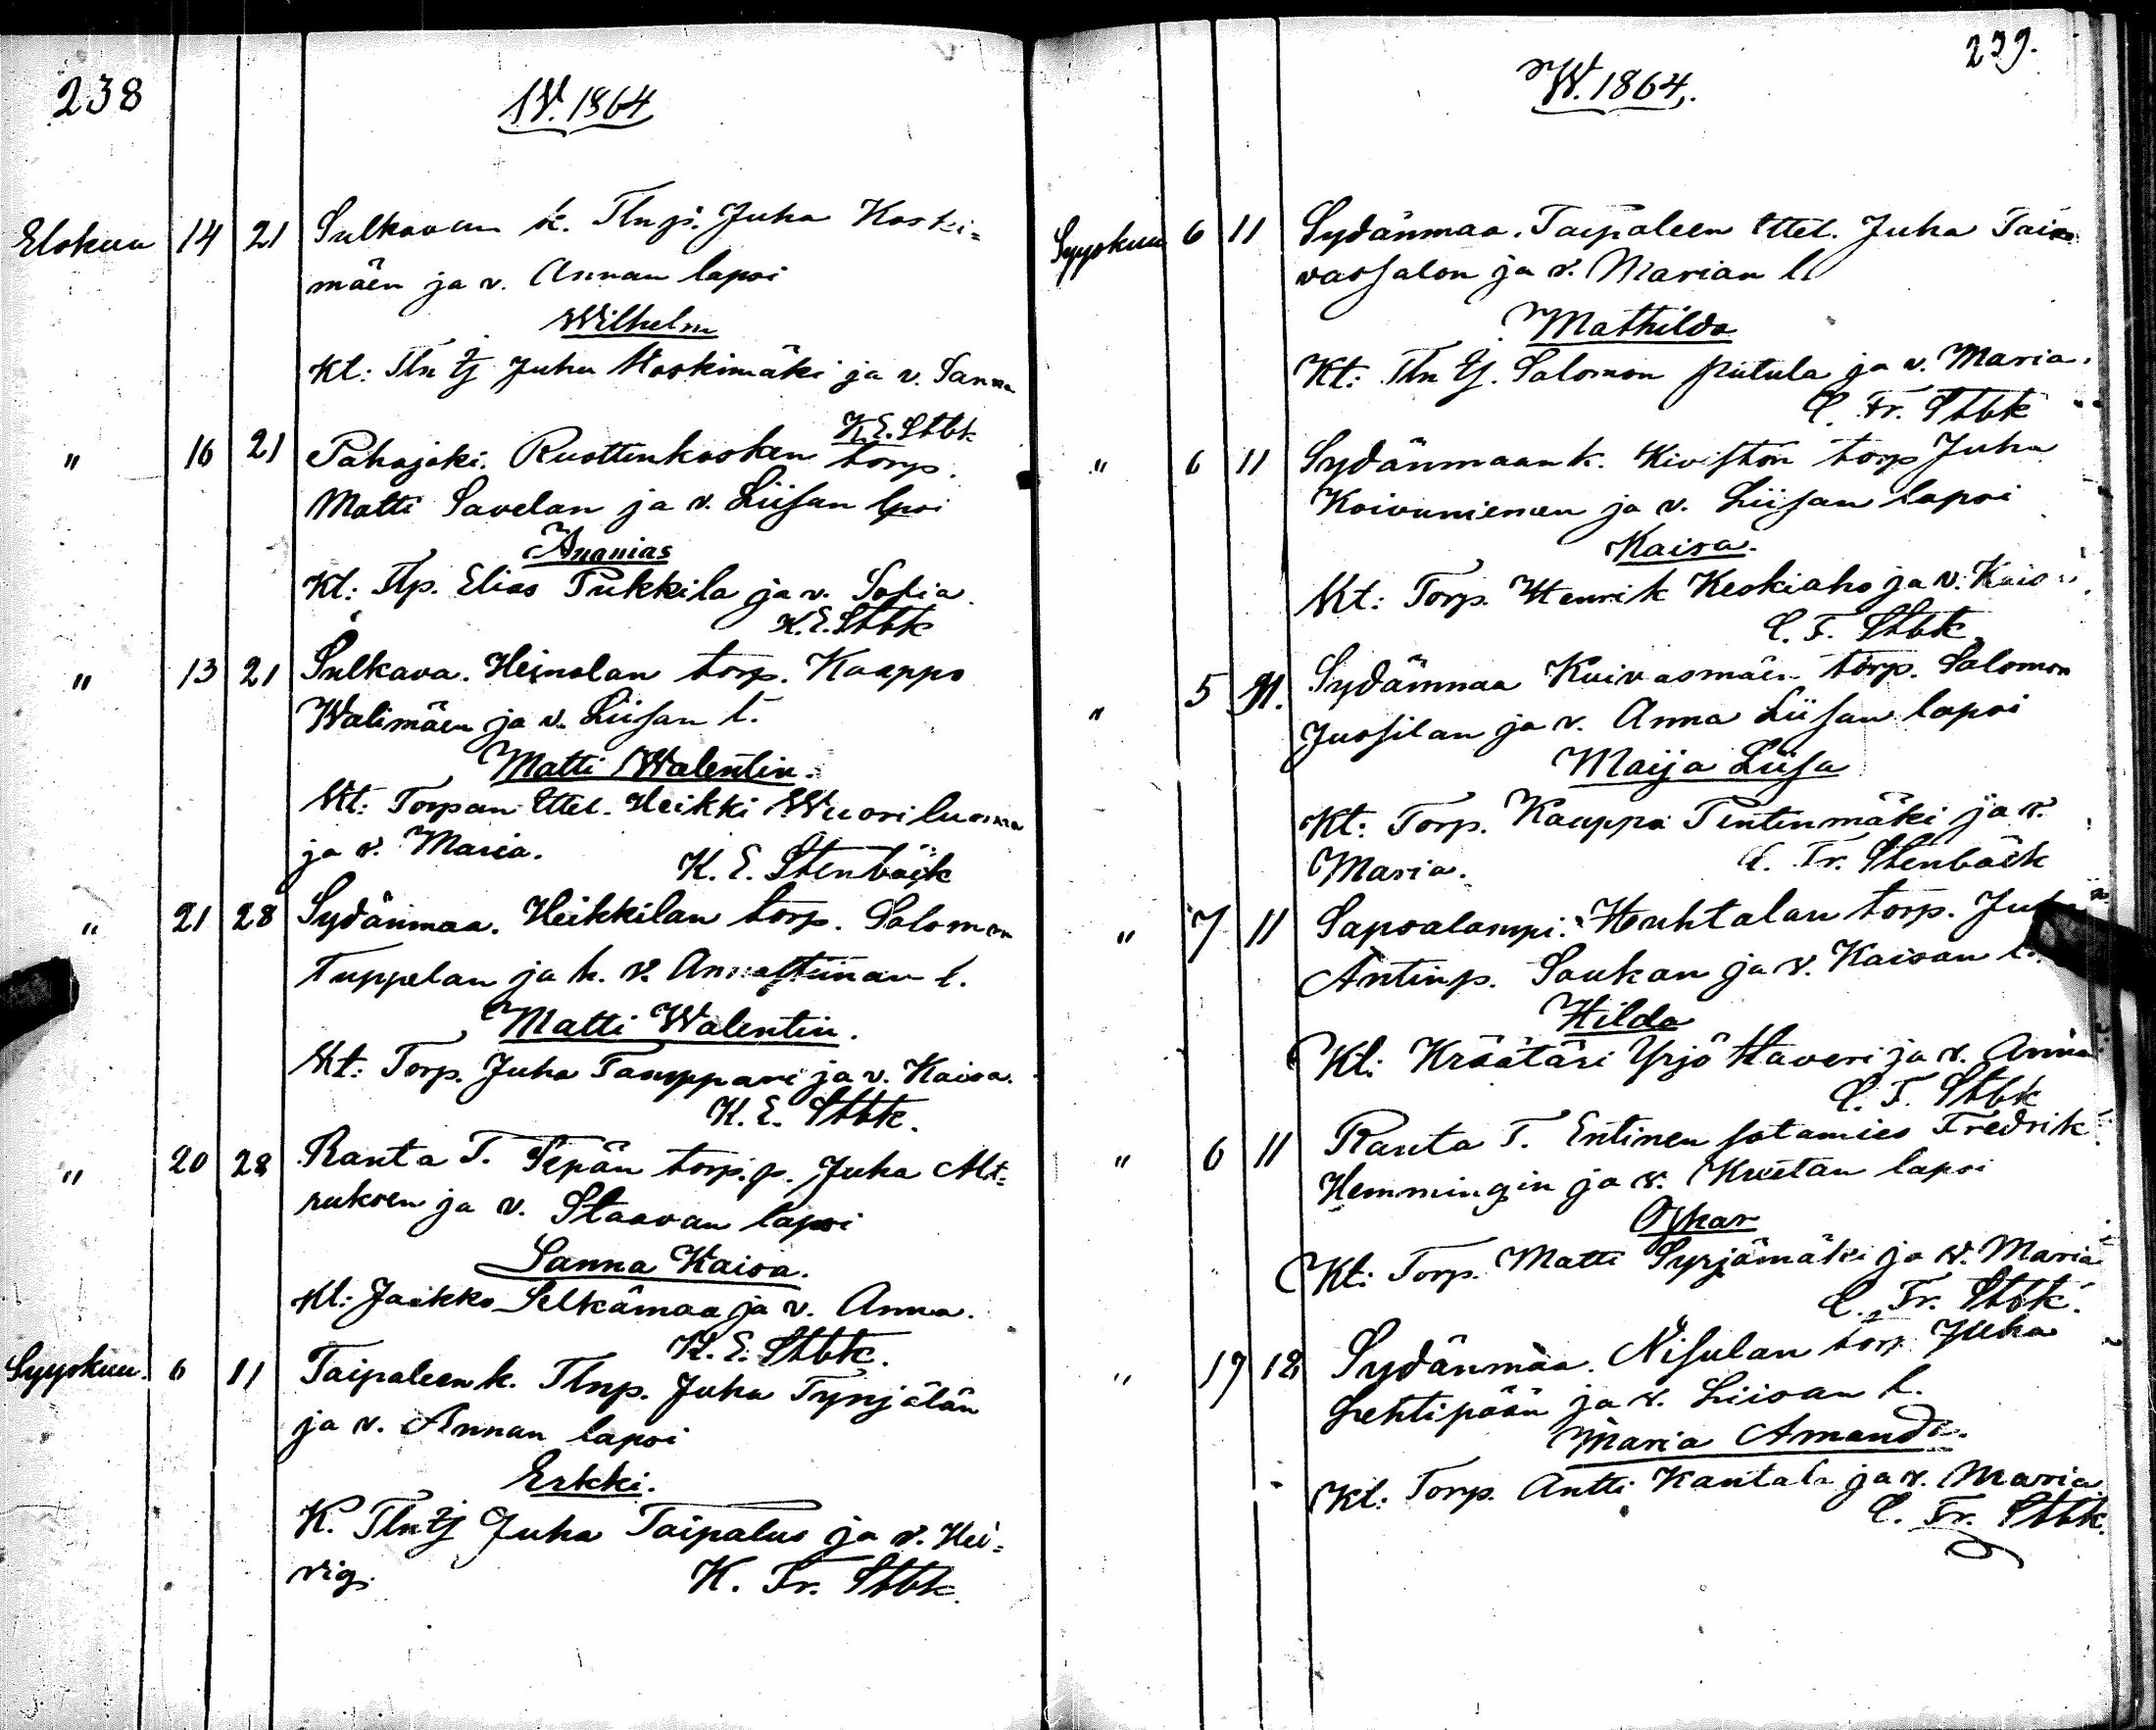 238
W. 1864
Elokuu 14 21 Sulkavan k. Tlnp. Juha Koski=
mäen ja v. Annan lapsi
Wilhelm
Kt: Tln Ij Juha Koskimäki ja v. Sanna
K.E. Stbk
" 16 21 Pahajoki. Ruottinkosken torp.
Matti Savelan ja v. Liisan lpsi
Ananias
Kt: Tlp. Elias Pukkila ja v. Sofia.
K.E. Stbk
" 13 21 Sulkava. Heinolan torp. Kaappo
Walimäen ja v. Liisan l.
Matti Walentin.
Kt: Torpan Ettel. Heikki Wuoriluoma
ja v. Maria.
K. E. Stenbäck
" 21 28 Sydänmaa. Heikkilan torp. Salomon
Tuppelan ja h. v. Annastiinan l.
Matti Walentin.
Kt: Torp. Juha Tamppari ja v. Kaisa.
K. E. Stbk.
" 20 28 Ranta T. Sepän torp. p. Juha Mt=
ruksen ja v. Staavan lapsi
Sanna Kaisa.
Kt: Jaakko Selkämaa ja v. Anna.
K. E. Stbk.
Syyskuu. 6 11 Taipaleen k. Tlnp. Juha Tynjälän
ja v. Annan lapsi
Erkki.
K. Tln Ij Juha Taipalus ja v. Hei=
vig.
K. Fr. Stbk.
239.
W. 1864.
Syyskuu 6 11 Sydänmaa. Taipaleen Ettel. Juha Tai
vassalon ja v. Marian l.
Mathilda
Kt: Tln Ij. Salomon Piitula ja v. Maria.
C. Fr. Stbk
" 6 11 Sydänmaan k. Kiviston torp Juha
Koivuniemen ja v. Liisan lapsi
Kaisa.
Kt: Torp. Henrik Keskiaho ja v. Kaisa
C. F. Stbk
" 5 11. Sydänmaa Kuivasmäen torp. Salomon
Jussilan ja v. Anna Liisan lapsi
Maija Liisa
Kt: Torp. Kaappo Pentinmäki ja v.
Maria.
C. Fr. Stenbäck
" 7 11 Sapsalampi. Huhtalan torp. Juha
Antinp. Saukan ja v. Kaisan l.
Hilda
Kt: Kräätäri Yrjö Haveri ja v. Anna
C. F. Stbk
" 6 11 Ranta T. Entinen sotamies Fredrik
Hemmingin ja v. Kreetan lapsi
Oskar
Kt: Torp. Matti Syrjämäki ja v. Maria
C. Fr. Stbk.
" 17 18 Sydänmaa. Nisulan torp. Juha
Lehtipään ja v. Liisan l.
Maria Amanda.
Kt: Torp. Antti Kantala ja v. Maria
C. Fr. Stbk.